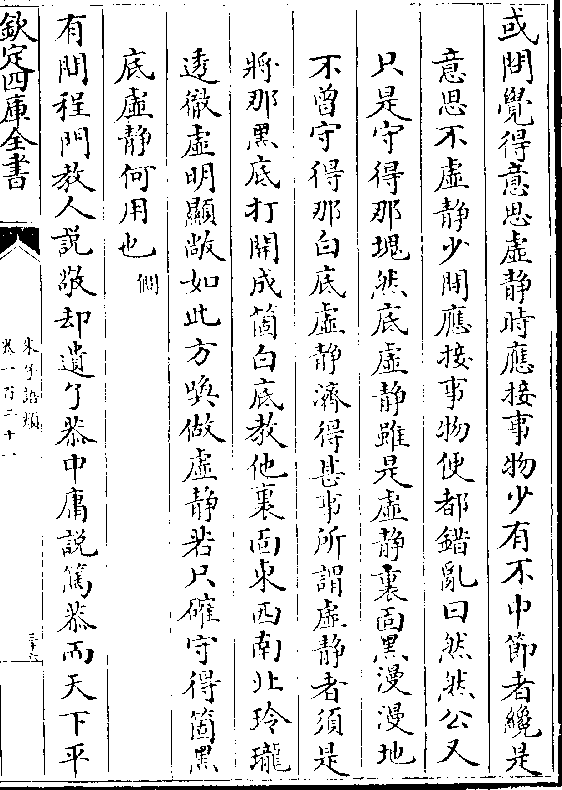 或問覺得意思虛静時應接事物少有不中節者纔是
意思不虛静少間應接事物便都錯亂曰然然公又
只是守得那塊然底虛静雖是虛静裏面黑漫漫地
不曾守得那白底虛静濟得甚事所謂虛静者須是
將那黑底打開成箇白底教他裏面東西南北玲瓏
透徹虛明顯敞如此方喚做虛静若只確守得箇黑
底虛静何用也 僩
有問程門教人說敬却遺了恭中庸說篤恭而天下平
欽定四庫全書
朱子語類
卷一百二十